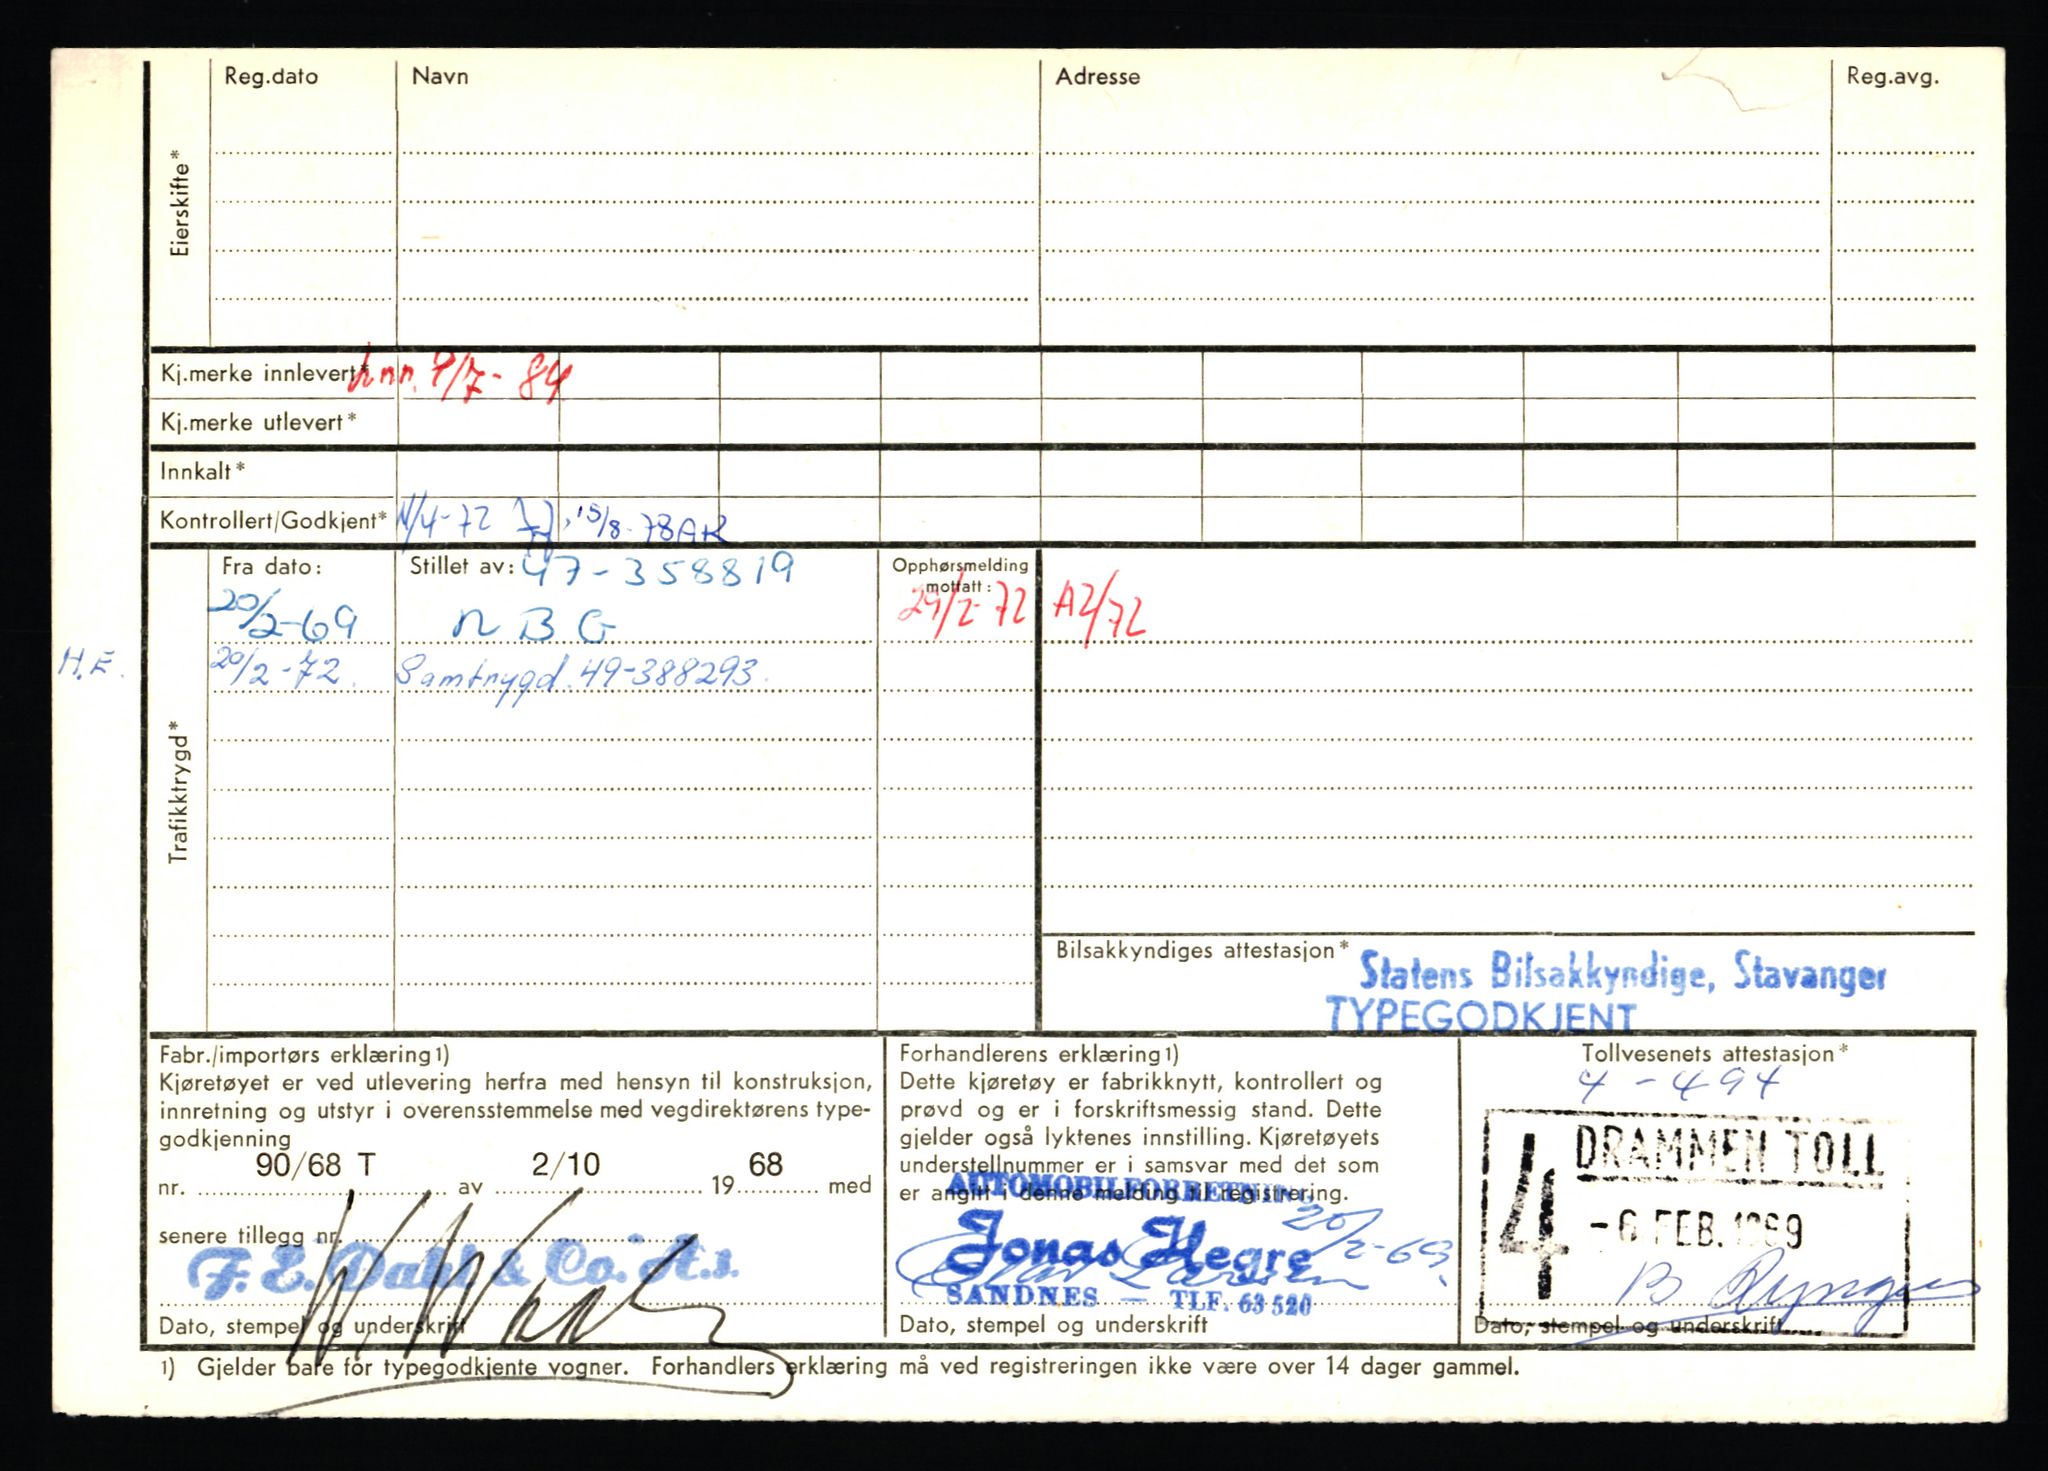 Reg.dato Navn Adresse Reg.avg.
Eierskifte*
Kj.merke innlevert* Inn. 9/7-84
Kj.merke utlevert*
Innkalt*
Kontrollert/Godkjent* 11/4-72 15/8-78 AK
Trafikktrygd*
Fra dato: Stillet av: 47-358819 Opphørsmelding mottatt:
20/2-69 NBG 29/2-72 A2/72
H.E. 20/2-72. Samtrygd. 49-388293.
Bilsakkyndiges attestasjon*
Statens Bilsakkyndige, Stavanger
TYPEGODKJENT
Fabr./importørs erklæring1)
Kjøretøyet er ved utlevering herfra med hensyn til konstruksjon,
innretning og utstyr i overensstemmelse med vegdirektørens type-
godkjenning
nr. 90/68 T av 2/10 1968 med
senere tillegg nr.
F. E. Dahl & Co. A.s.
Dato, stempel og underskrift
Forhandlerens erklæring1)
Dette kjøretøy er fabrikknytt, kontrollert og
prøvd og er i forskriftsmessig stand. Dette
gjelder også lyktenes innstilling. Kjøretøyets
understellnummer er i samsvar med det som
er angitt i denne melding til registrering.
AUTOMOBILFORRETNING
20/2-69.
Jonas Hegre
SANDNES — TLF. 63 520
Dato, stempel og underskrift
Tollvesenets attestasjon*
4-494
4 DRAMMEN TOLL
-6. FEB. 1969
Dato, stempel og underskrift
1) Gjelder bare for typegodkjente vogner. Forhandlers erklæring må ved registreringen ikke være over 14 dager gammel.